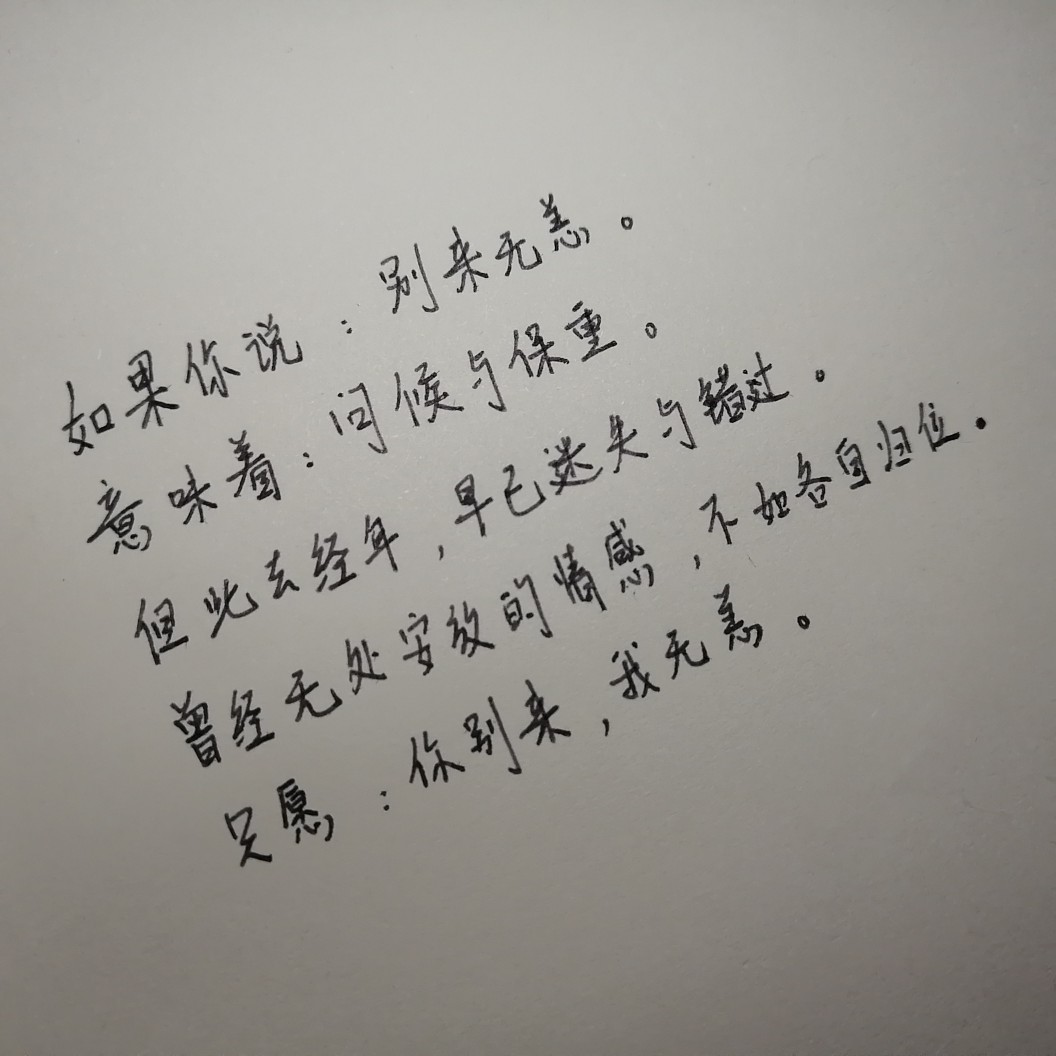 如果你说：别来无恙。
意味着：问候与保重。
但此去经年，早已迷失与错过。
曾经无处安放的情感，不如各自归位。
只愿：你别来，我无恙。